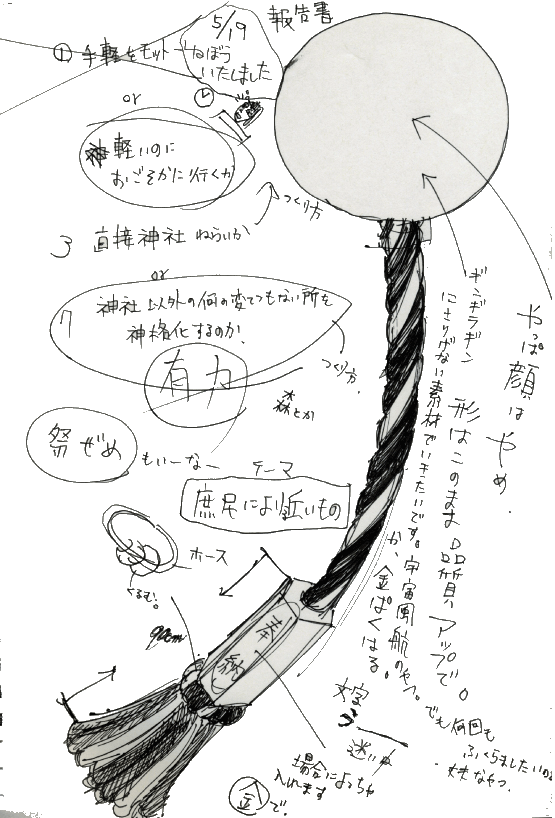 報告書
5/19
ねぼう
いたしました
① 手軽をモットー
or
軽いのに
おごそかに行くか
つくり方
3 直接神社ねらいか
or
神社以外の何の変てつもない所を
神格化するのか.
つくり方.
有力
森とか
祭ぜめ
もいーなー
テーマ
庶民により近いもの
ホース
くるむ!
90cm
奉納
ギンギラギン
にさりげない素材でいきたいです。宇宙風船のやつ。
か、金ぱくはる。
やっぱ顔はやめ.
形はこのまま品質アップで。
でも何回も
ふくらましたいので
丈夫なやつ.
文字
迷い中
場合によっちゃ
入れます
金で.